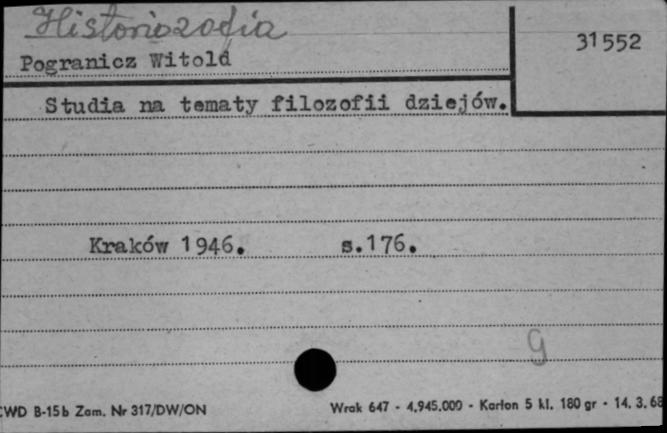 Historiozofia
31552
Pogranicz Witold
Studia na tematy filozofii dziejów.
Kraków 1946. s.176.
g
CWD B-15b Zam. Nr 317/DW/ON Wrak 647 - 4.945.000 - Karton 5 kl. 180 gr - 14. 3. 68